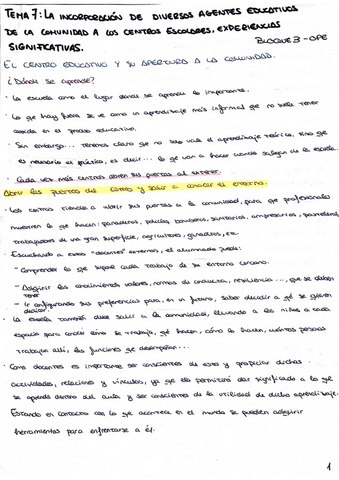 TEMA 7: LA INCORPORACIÓN DE DIVERSOS AGENTES EDUCATIVOS
DE LA COMUNIDAD A LOS CENTROS ESCOLARES, EXPERIENCIAS
SIGNIFICATIVAS. BLOQUE 3 - OPE
EL CENTRO EDUCATIVO Y SU APERTURA A LA COMUNIDAD.
¿Dónde se aprende?
· La escuela como el lugar donde se aprende lo importante.
· Lo que hay fuera se ve como un aprendizaje más informal que no suele tener
cabida en el proceso educativo.
· Sin embargo... tenemos claro que no solo vale el aprendizaje teórico, sino que
es necesario el práctico, es decir... lo que van a hacer cuando salgan de la escuela.
· Cada vez más centros abren sus puertas al exterior.
Abrir las puertas del centro y salir a conocer el entorno.
· Los centros tienden a abrir sus puertas a la comunidad, para que profesionales
muestren lo que hacen: panaderos, policías, bomberos, sanitarios, empresarios,
trabajadores de una gran superficie, agricultores, ganaderos, etc.
· Escuchando a estos "docentes" externos, el alumnado puede:
- Comprender lo que supone cada trabajo de su entorno cercano.
- Adquirir los conocimientos, valores, normas de conducta, resiliencia ..., que se deben
tener
- Ir configurando sus preferencias para, en un futuro, saber decidir a qué se quieren
dedicar.
· La escuela también debe salir a la comunidad, llevando a los niños a cada
espacio para conocer cómo se trabaja, qué hacen, cómo lo hacen, cuántas personas
trabajan allí, las funciones que desempeñan...
· Como docentes es importante ser conscientes de esto y propiciar dichas
actividades, relaciones y vínculos, ya que ello permitirá dar significado a lo que
se aprende dentro del aula y ser conscientes de la utilidad de dicho aprendizaje.
Estando en contacto con lo que acontece en el mundo se pueden adquirir
herramientas para enfrentarse a él.
1